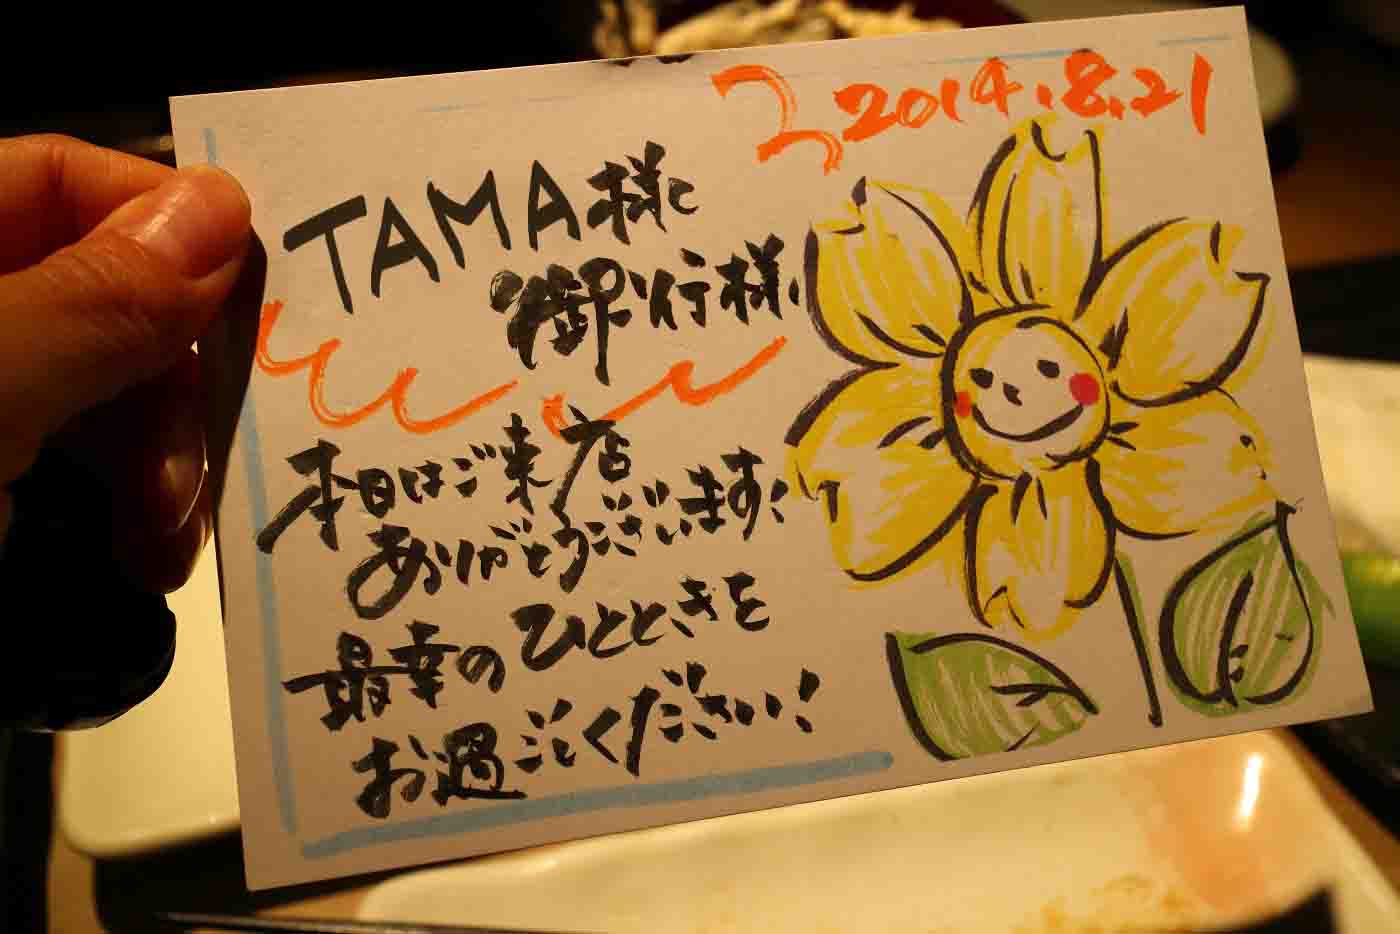 2014.8.21
TAMA様と
御一行様、
本日はご来店
ありがとうございます!
最幸のひとときを
お過ごしください!